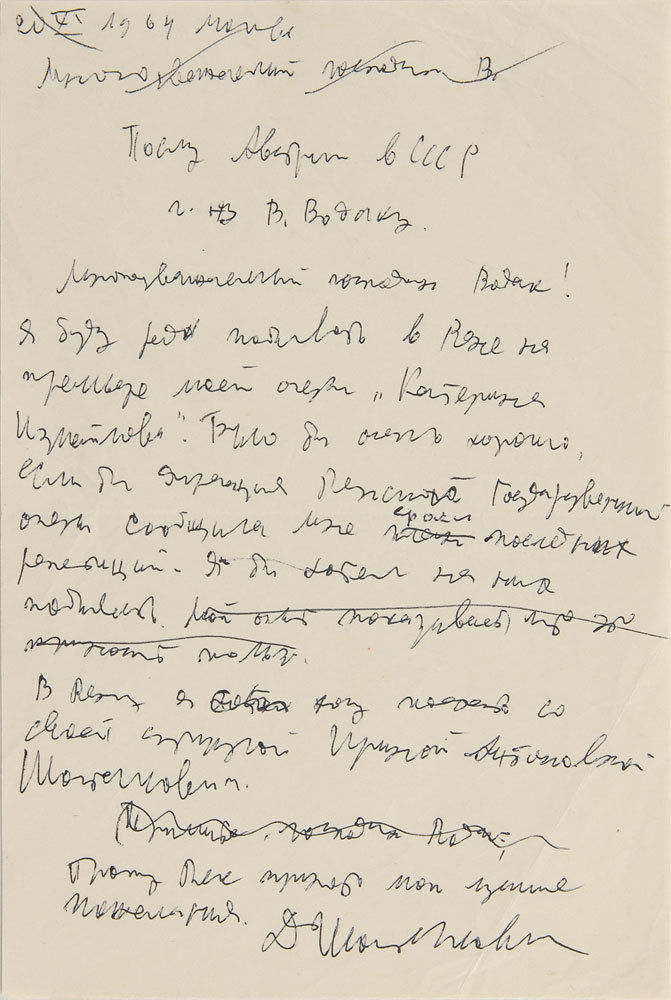 20 XI 1964 Москва
Многоуважаемый господин В.
Послу Австрии в СССР
г-ну В. Водаку.
Многоуважаемый господин Водак!
Я буду рад побывать в Вене на
премьере моей оперы „Катерина
Измайлова". Было бы очень хорошо,
если бы дирекция Венской Государственной
оперы сообщила мне сроки последних
репетиций. Я бы хотел на них
побывать. Мой опыт показывает, что это
приносит пользу.
В Вену я хочу поехать со
своей супругой Ириной Антоновной
Шостакович.
господин Водак,
Прошу Вас принять мои лучшие
пожелания.
Д Шостакович